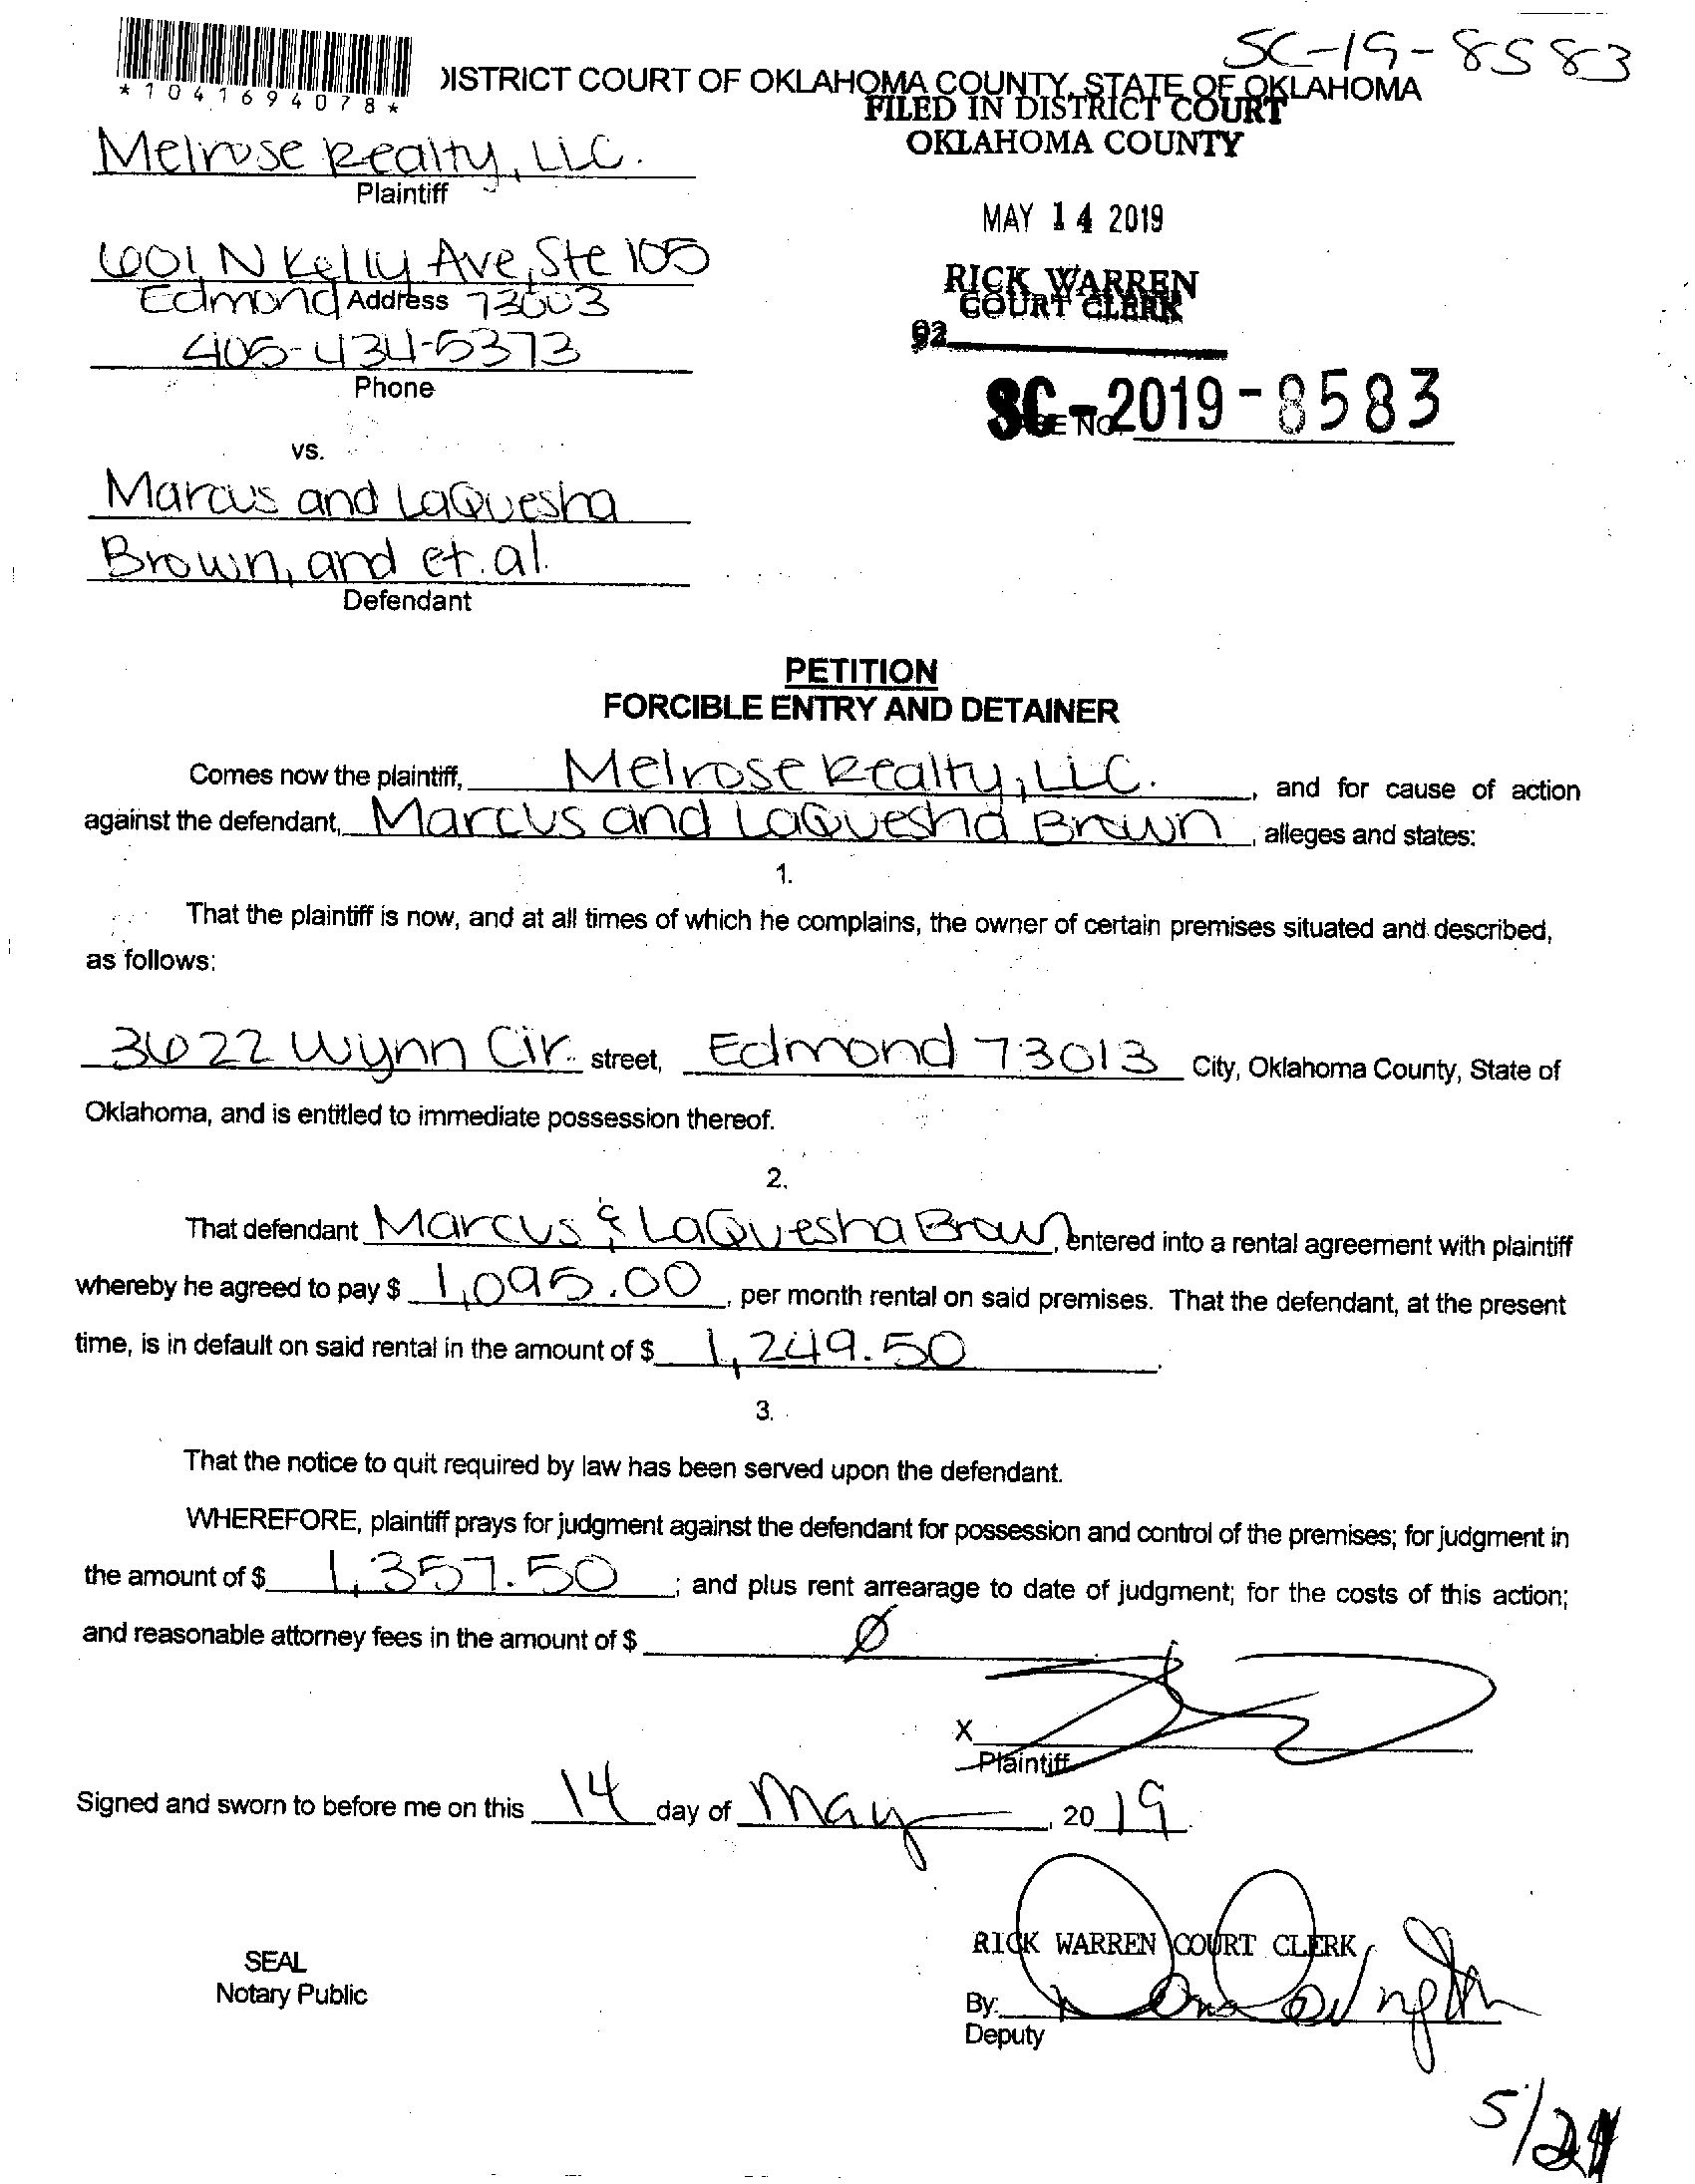 SC-19-8583
*1041694078*
DISTRICT COURT OF OKLAHOMA COUNTY, STATE OF OKLAHOMA
FILED IN DISTRICT COURT
OKLAHOMA COUNTY
Melrose Realty, LLC.
Plaintiff
MAY 14 2019
601 N Kelly Ave, Ste 105
Edmond Address 73003
RICK WARREN
COURT CLERK
92
405-434-5373
Phone
SC-2019-8583
vs.
Marcus and LaQuesha
Brown, and et. al.
Defendant
PETITION
FORCIBLE ENTRY AND DETAINER
Comes now the plaintiff, Melrose Realty, LLC. , and for cause of action
against the defendant, Marcus and LaQuesha Brown , alleges and states:
1.
That the plaintiff is now, and at all times of which he complains, the owner of certain premises situated and described,
as follows:
3622 Wynn Cir. street, Edmond 73013 City, Oklahoma County, State of
Oklahoma, and is entitled to immediate possession thereof.
2.
That defendant Marcus & LaQuesha Brown, entered into a rental agreement with plaintiff
whereby he agreed to pay $ 1,095.00 , per month rental on said premises. That the defendant, at the present
time, is in default on said rental in the amount of $ 1,249.50 .
3.
That the notice to quit required by law has been served upon the defendant.
WHEREFORE, plaintiff prays for judgment against the defendant for possession and control of the premises; for judgment in
the amount of $ 1,357.50 ; and plus rent arrearage to date of judgment; for the costs of this action;
and reasonable attorney fees in the amount of $ Ø
X
Plaintiff
Signed and sworn to before me on this 14 day of May , 20 19
RICK WARREN COURT CLERK
SEAL
Notary Public
By:
Deputy
5/21